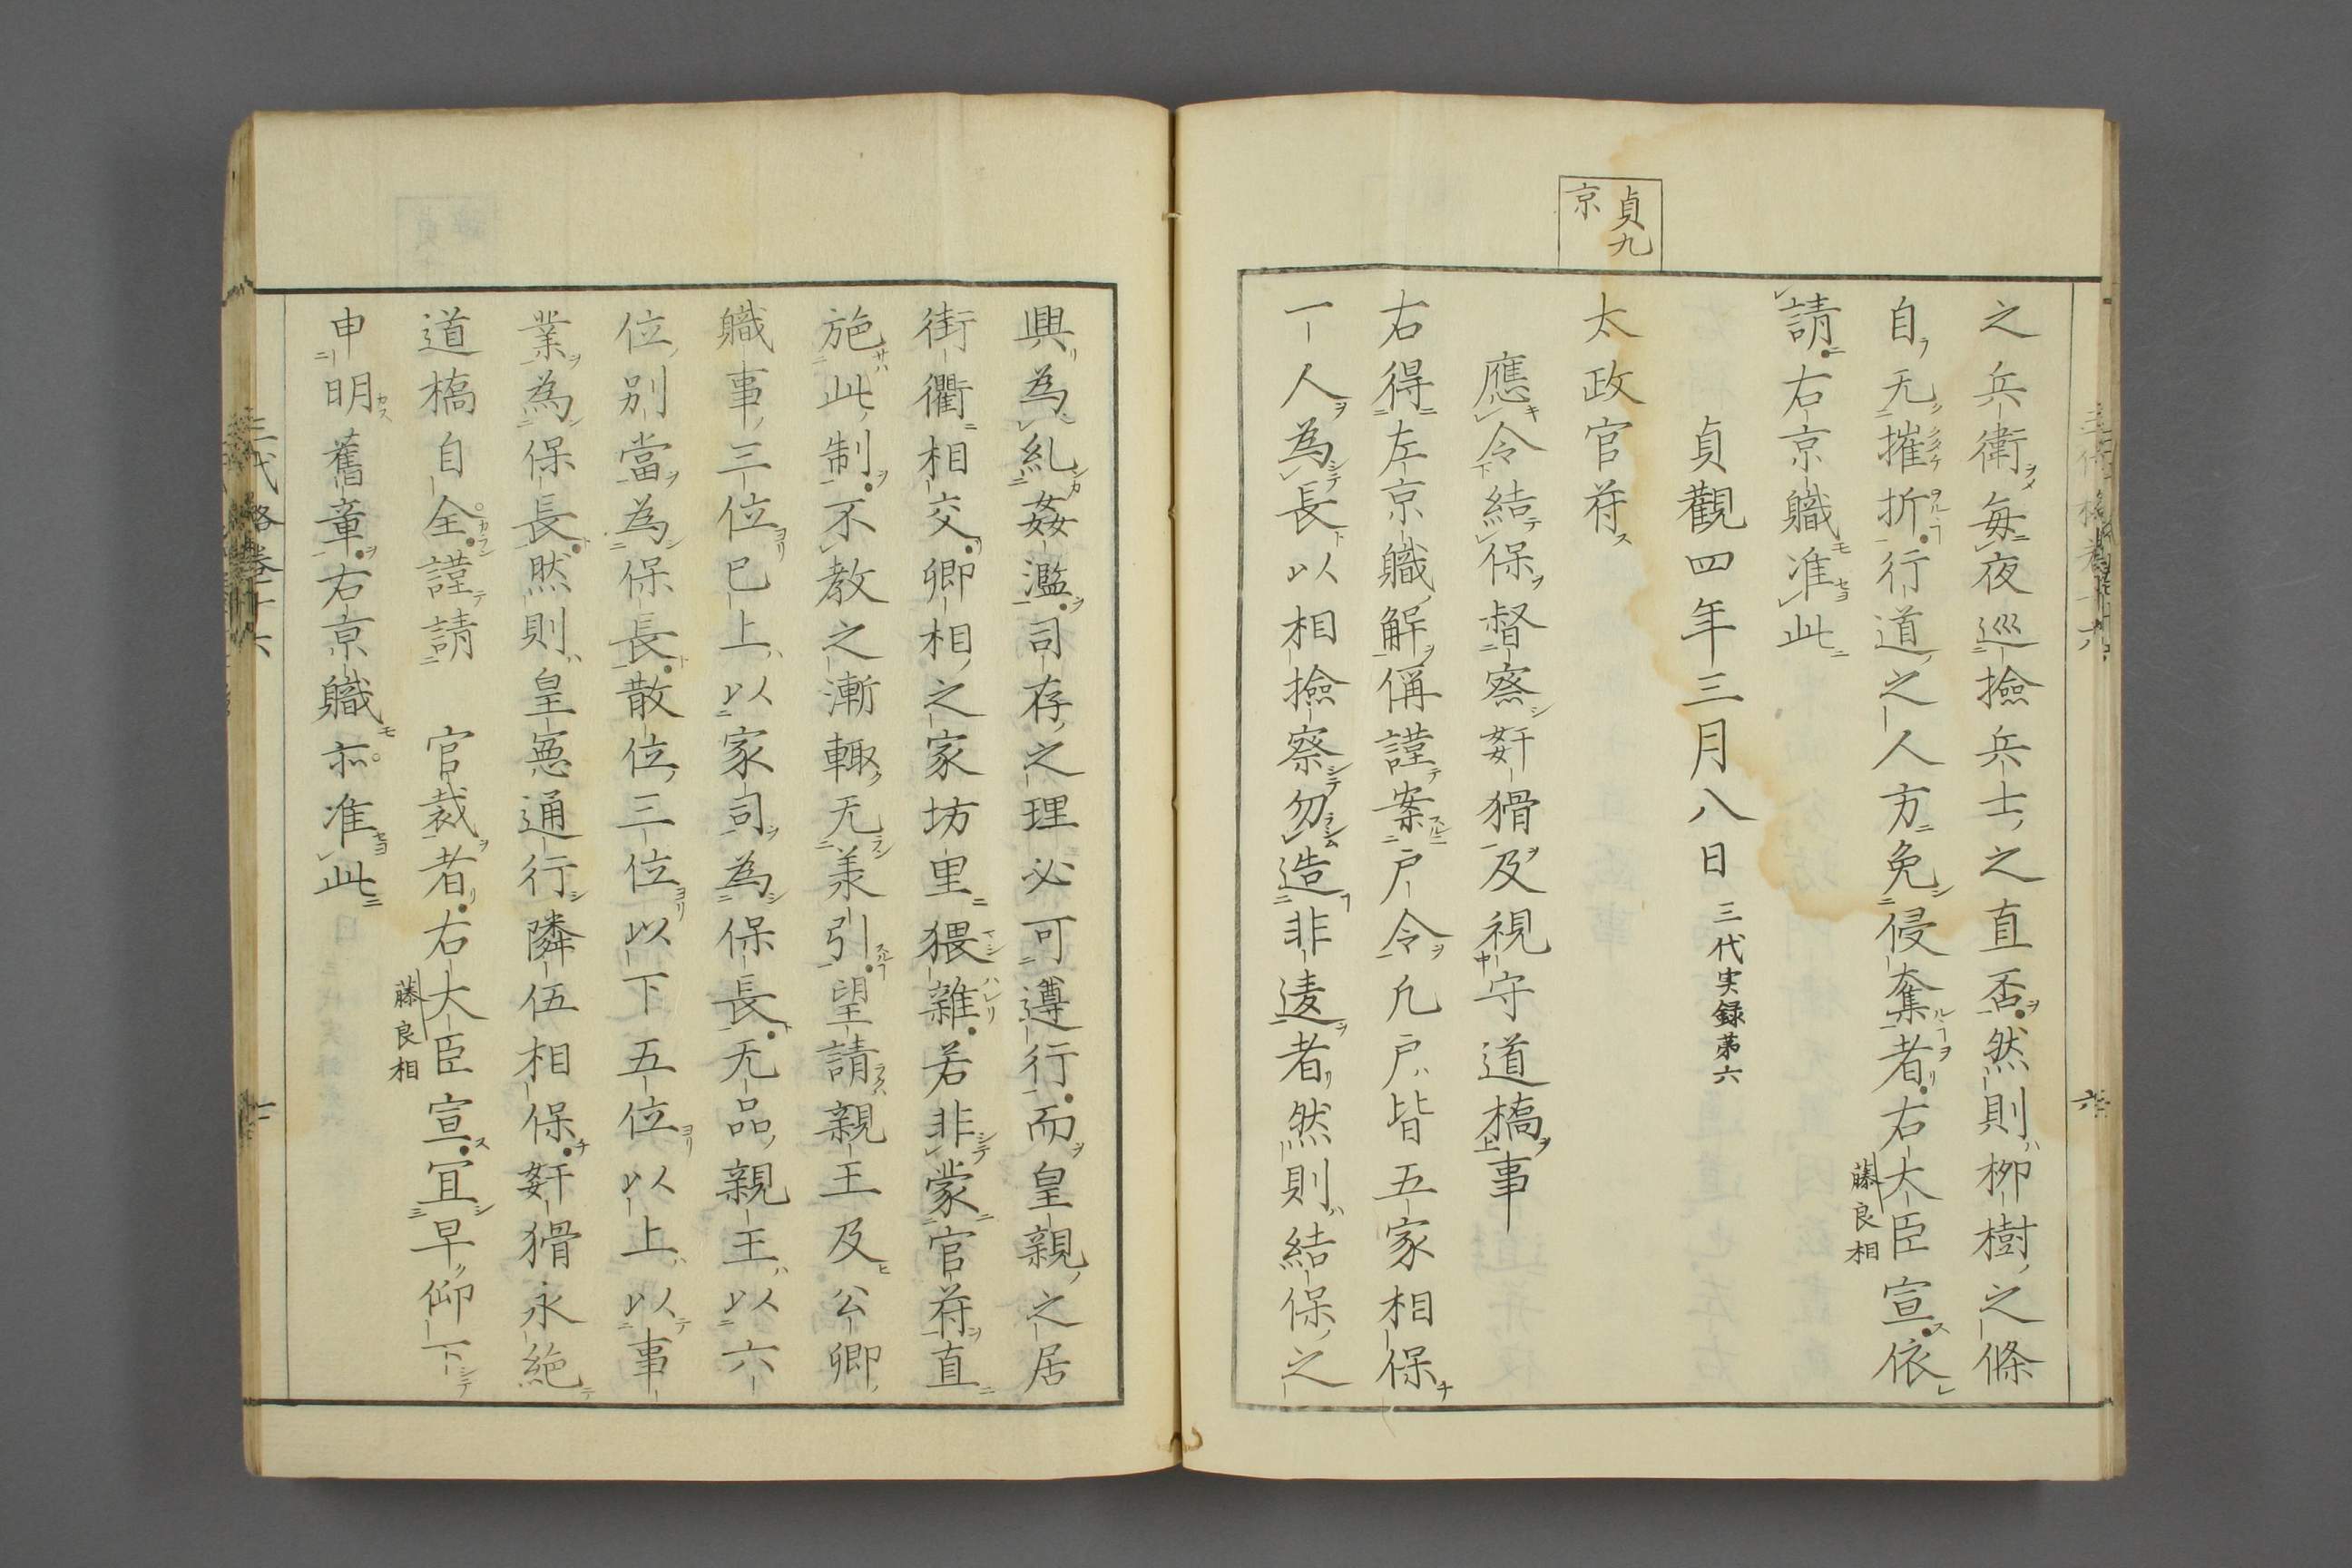 貞九
京
之兵衛毎夜巡撿兵士之直否然則栁樹之條
自无摧折行道之人方免侵奪者右大臣宣依
藤良相
請右京職准此
貞觀四年三月八日三代実録苐六
太政官符
應令結保督察奸猾及視守道橋事
右得左京職解偁謹案戸令凢戸皆五家相保
一人為長以相撿察勿造非違者然則結保之
興為糺姦濫司存之理必可遵行而皇親之居
街衢相交卿相之家坊里猥雜若非蒙官符直
施此制不教之漸輙无羕引望請親王及公卿
職事三位已上以家司為保長无品親王以六
位別當為保長散位三位以下五位以上以事
業為保長然則皇憲通行隣伍相保奸猾永絶
道橋自全謹請　官裁者右大臣宣宜早仰下
藤良相
申明舊章右京職亦准此
三代格卷十六